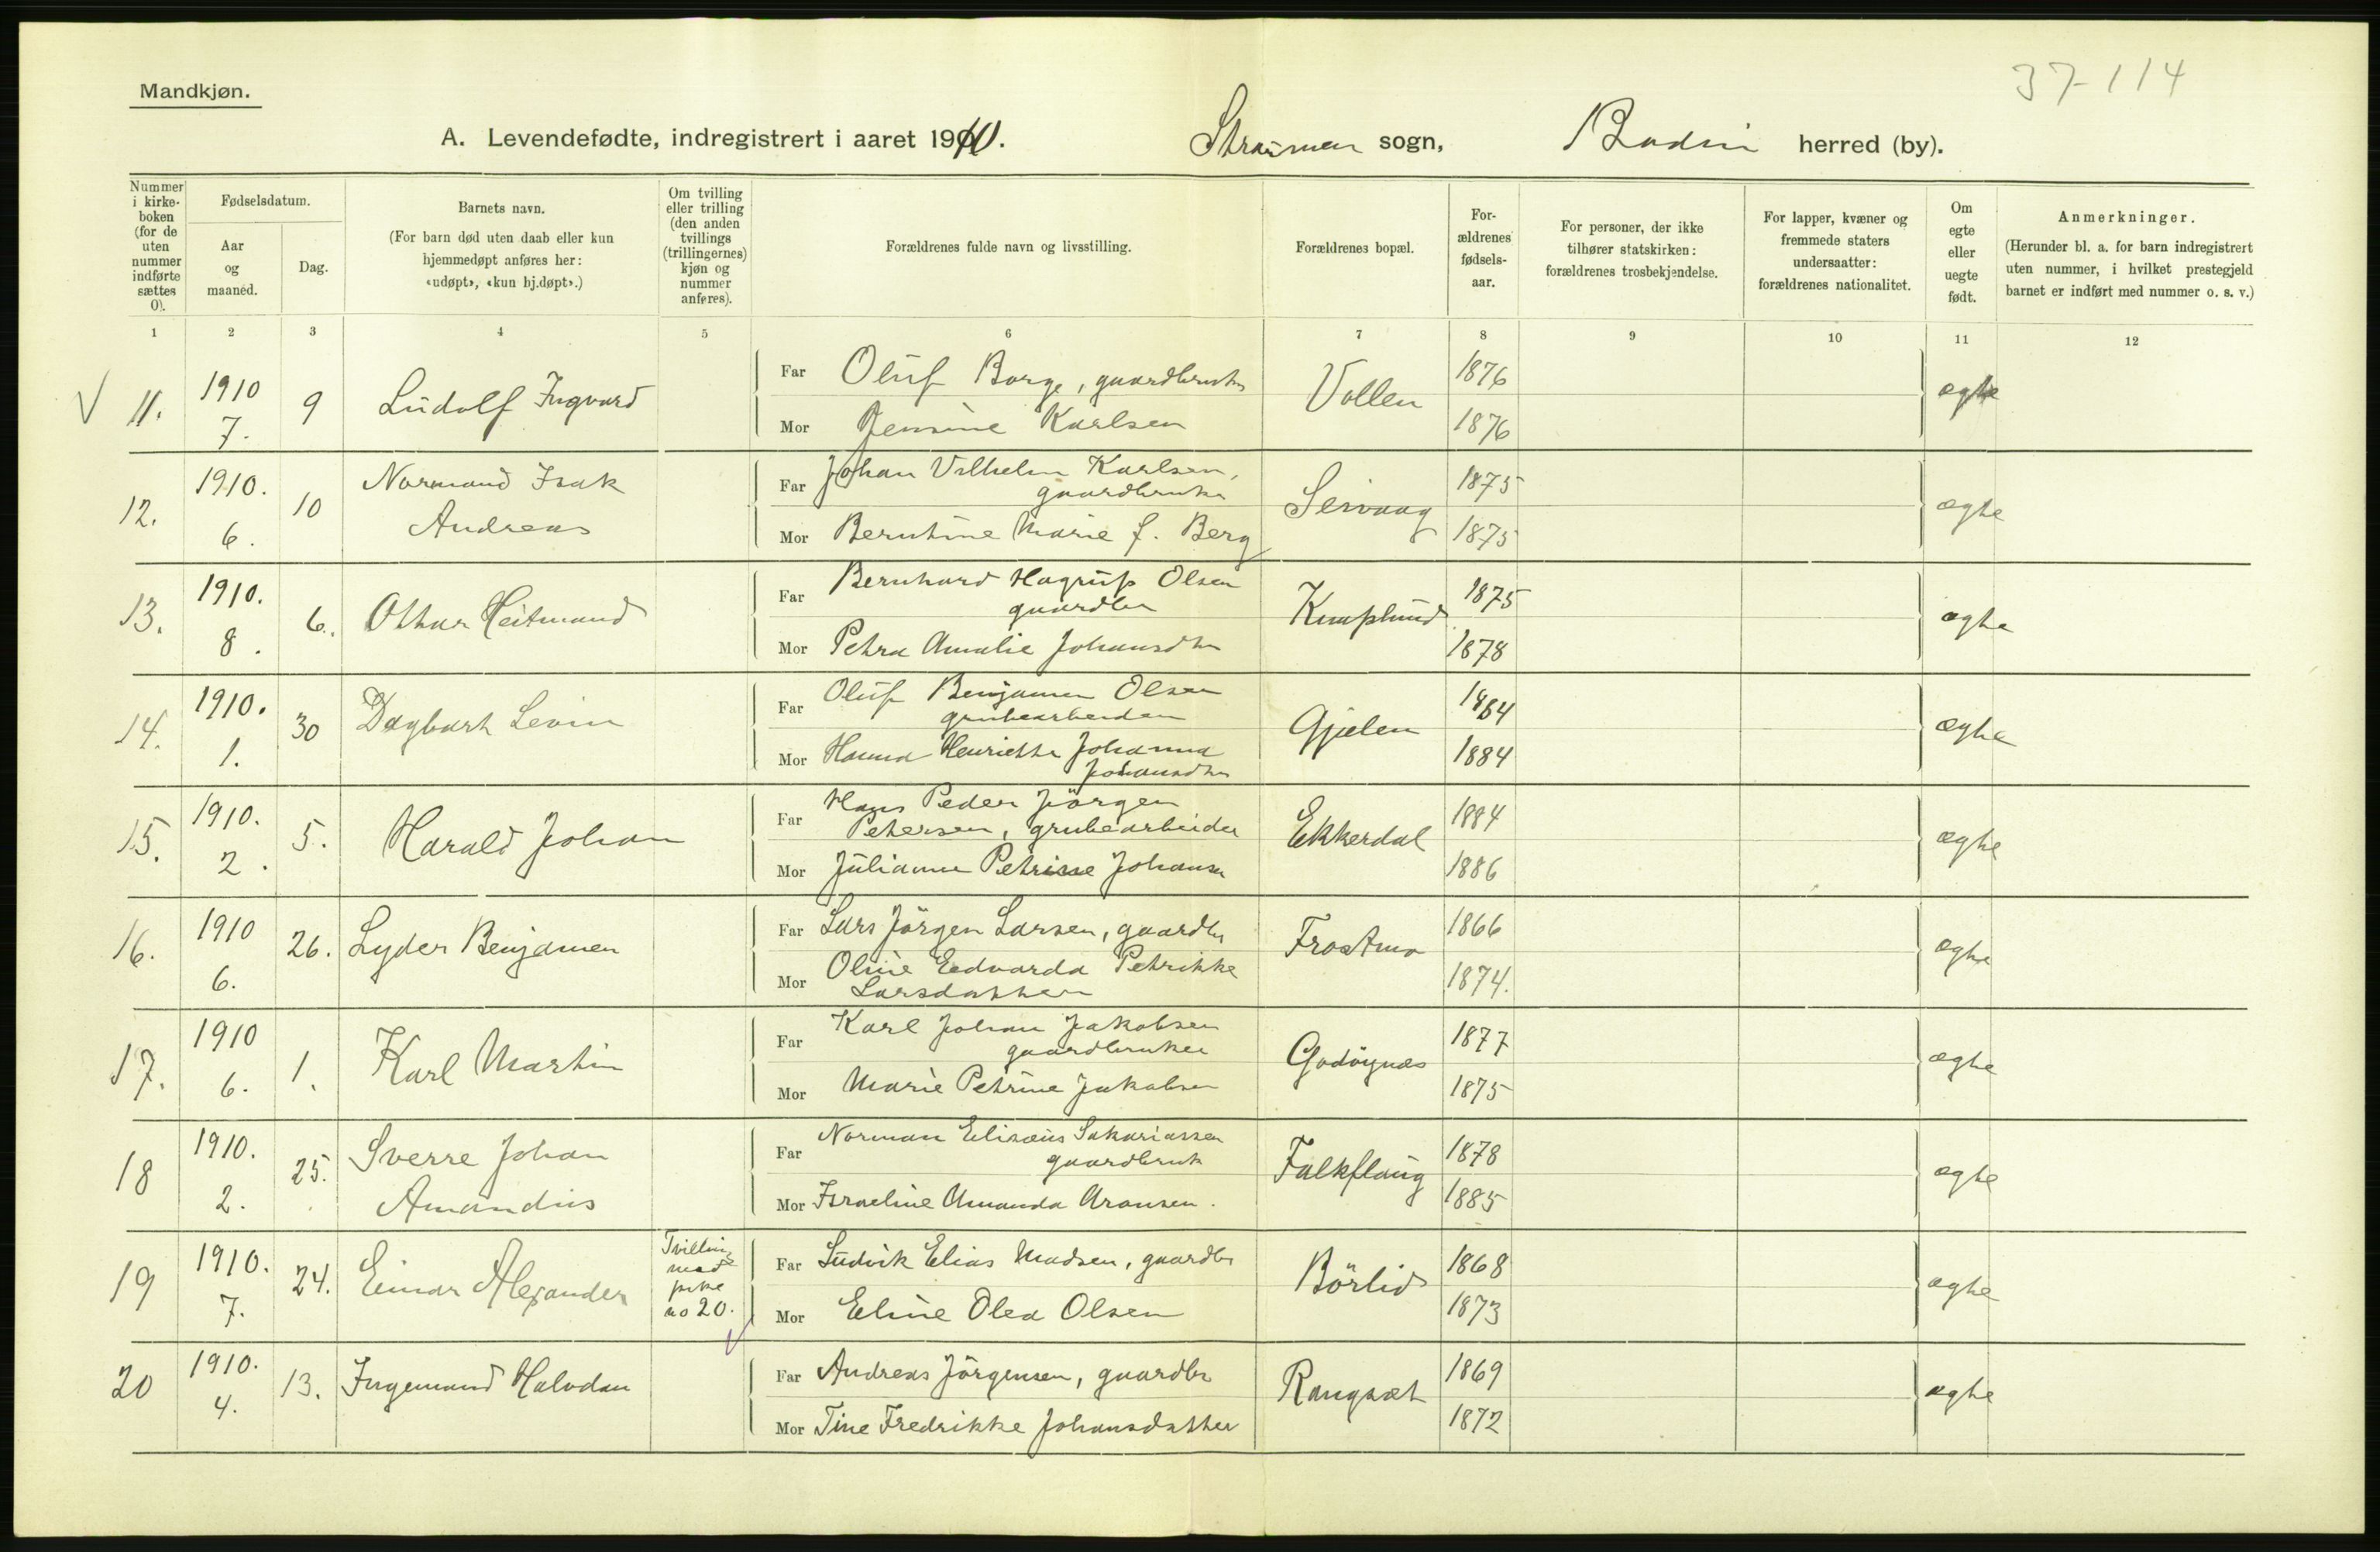 37-114
Mandkjøn.
A. Levendefødte, indregistrert i aaret 1910. Strømen sogn, Bodin herred (by).
Nummer i kirke-boken (for de uten nummer indførte sættes 0).
Fødselsdatum.
Aar og maaned.
Dag.
Barnets navn.
(For barn død uten daab eller kun hjemmedøpt anføres her: «udøpt», «kun hj.døpt».)
Om tvilling eller trilling (den anden tvillings (trillingernes) kjøn og nummer anføres).
Forældrenes fulde navn og livsstilling.
Forældrenes bopæl.
For-ældrenes fødsels-aar.
For personer, der ikke tilhører statskirken: forældrenes trosbekjendelse.
For lapper, kvæner og fremmede staters undersaatter: forældrenes nationalitet.
Om egte eller uegte født.
Anmerkninger.
(Herunder bl. a. for barn indregistrert uten nummer, i hvilket prestegjeld barnet er indført med nummer o. s. v.)
1 2 3 4 5 6 7 8 9 10 11 12
V 11. 1910 7. 9 Ludolf Ingvard
Far Oluf Borge, gaardbruker Vollen 1876 ægte
Mor Jensine Karlsen 1876
12. 1910. 6. 10 Normand Isak Andreas
Far Johan Vilhelm Karlsen, gaardbruker Seivaag 1875 ægte
Mor Berntine Marie f. Berg 1875
13. 1910. 8. 6. Othar Heitmand
Far Bernhard Hagrup Olsen gaardbr Knaplund 1875 ægte
Mor Petra Amalie Johansdtr 1878
14. 1910. 1. 30 Dagbart Levin
Far Oluf Benjamen Olsen grubearbeider Gjælen 1884 ægte
Mor Hanna Henriette Johanna Johansdtr 1884
15. 1910. 2. 5. Harald Johan
Far Hans Peder Jörgen Petersen, grubearbeider Ekkerdal 1884 ægte
Mor Julianne Petrisse Johansen 1886
16. 1910 6. 26. Lyder Benjamen
Far Lars Jörgen Larsen, gaardbr Frostmo 1866 ægte
Mor Oline Eedvarda Petrikke Larsdatter 1874.
17. 1910 6. 1. Karl Martin
Far Karl Johan Jakobsen gaardbruker Godöynes 1877 ægte
Mor Marie Petrine Jakobsen 1875
18 1910. 2. 25. Sverre Johan Amandus
Far Norman Elisæus Sakariassen gaardbruk Falkflaug 1878 ægte
Mor Israeline Amanda Aronsen. 1885
19 1910. 7. 24. Einar Alexander Tvilling med pike no 20.
Far Ludvik Elias Madsen, gaardbr Börlid 1868 ægte
Mor Eline Olea Olsen 1873
20 1910. 4. 13. Ingemand Halvdan
Far Andreas Jörgensen, gaardbr Rangsæt 1869 ægte
Mor Tine Fredrikke Johansdatter 1872